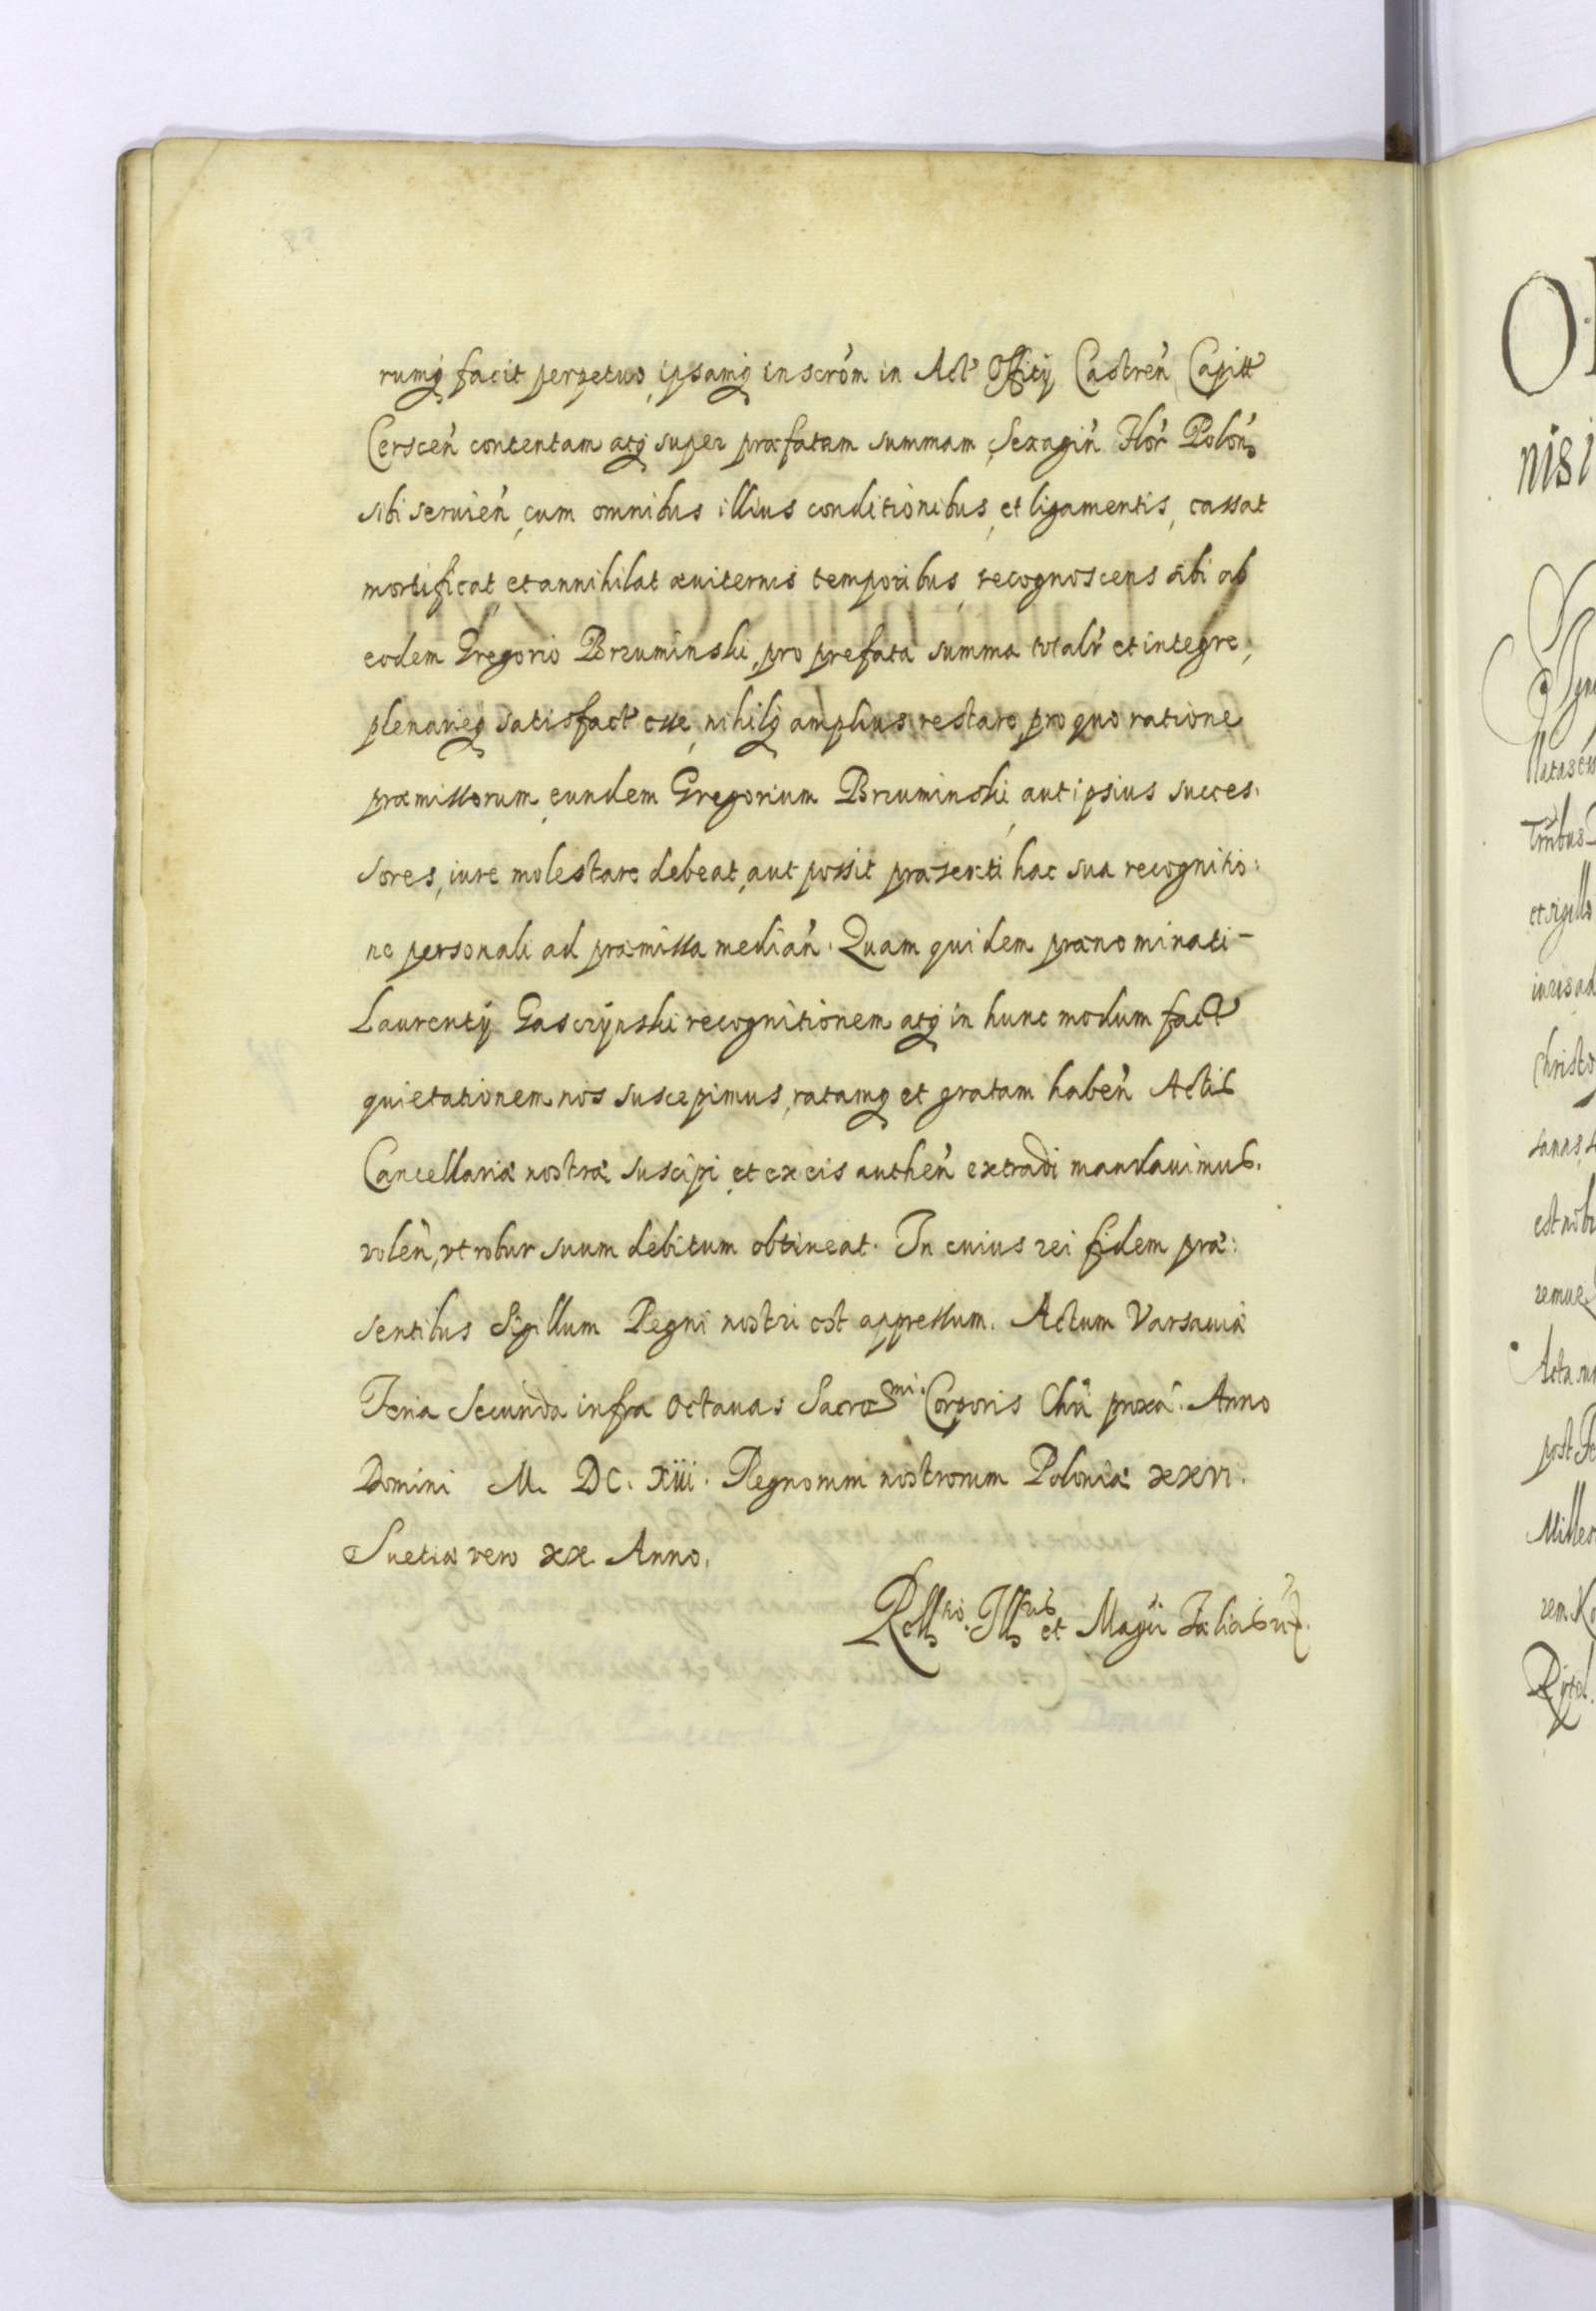 rumq̃ facit perpetuo, ipsamq̃ inscrõm in Act' Officij Castreñ Capitt'
Cersceñ contentam atq̃ super præfatam summam Sexagiñ Flor' Poloñ
sibi seruieñ, cum omnibus illius conditionibus, et ligamentis, cassat
mortificat, et annihilat æuiternis temporibus, recognoscens sibi ab
eodem Gregorio Brzuminski, pro prefata summa totalr' et integre,
plenarieq̃ satisfact' esse, nihilq̃ amplius restare, pro quo ratione
præmissorum, eundem Gregorium Brzuminski, aut ipsius succes:
sores, iure molestare debeat, aut possit præsenti hac sua recognitio:
ne personali ad præmissa mediañ. Quam quidem prænominati-
Laurentij Gasczynski recognitionem atq̃ in hunc modum fact'
quietationem nos suscepimus, ratamq̃ et gratam habeñ Actis
Cancellariæ nostræ suscipi, et ex eis autheñ extradi mandauimus.
voleñ, vt robur suum debitum obtineat. In cuius rei fidem præ:
sentibus Sigillum Regni nostri est appressum. Actum Varsauiæ
Feria Secunda infra Octauas Sacro Smi. Corporis Chri proxa. Anno
Domini M. DC. Xiii. Regnorum nostrorum Poloniæ xxvi.
Suetiæ vero xx Anno.
Rell^tio. Ill^tris et Magci Fælicis
O
nisi
llatas cu
et sigillo
iuris ad
Christo
est nob
Acta no